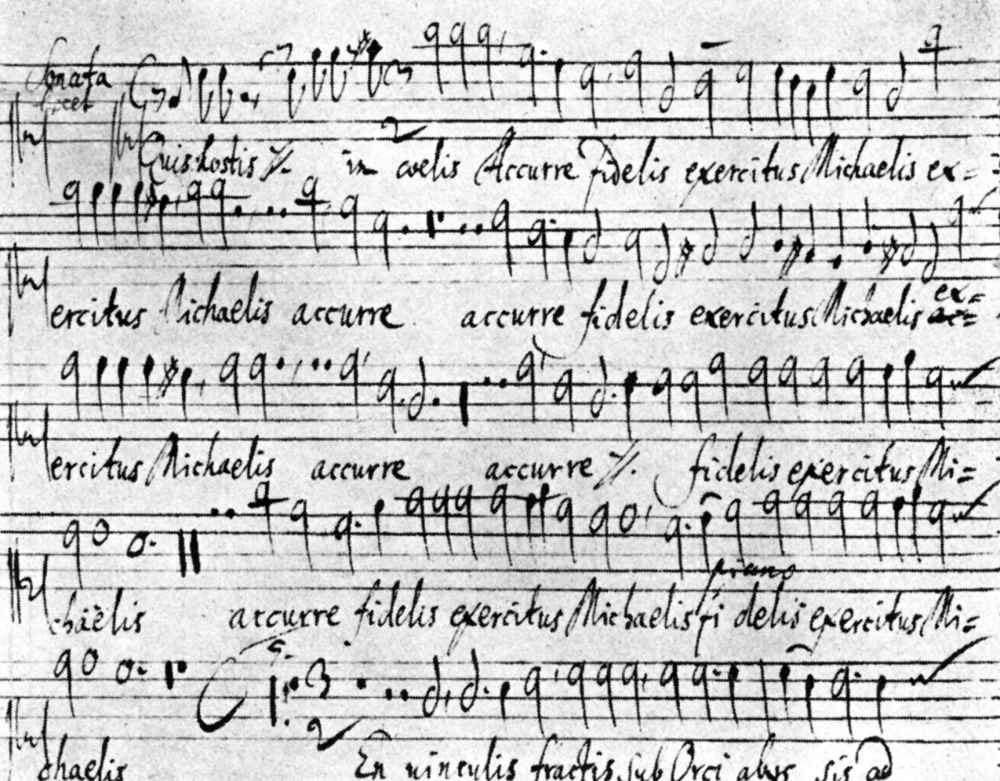 Sonata
licet
Quis hostis in coelis Accurre fidelis exercitus Michaelis ex=
ercitus Michaelis accurre accurre fidelis exercitus Michaelis ex=
ercitus Michaelis accurre accurre fidelis exercitus Mi=
piano
chaëlis accurre fidelis exercitus Michaelis fi delis exercitus Mi=
chaelis En vinculis fractis sub Orci